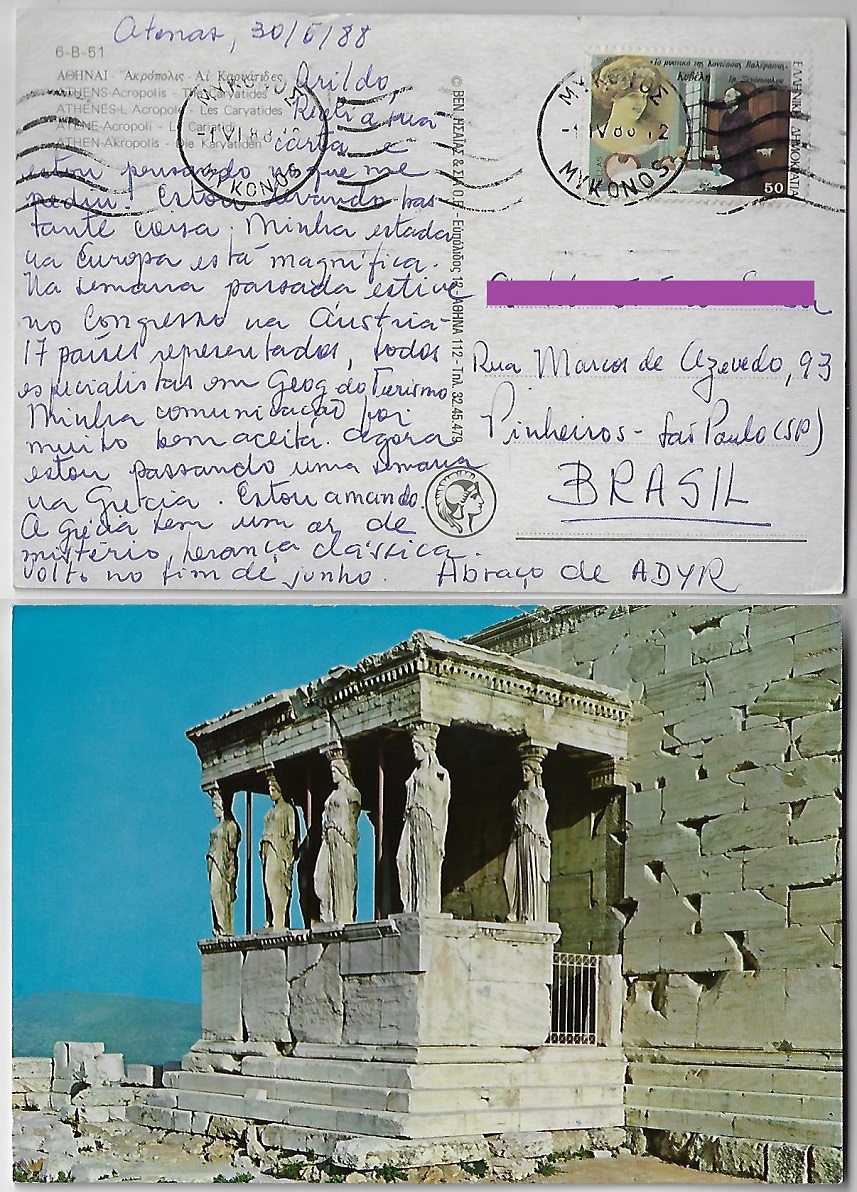 Atenas, 30/5/88
6-B-51
ΑΘΗΝΑΙ - Ἀκρόπολις - Αἱ Καρυάτιδες
ATHENS-Acropolis - The Caryatides
ATHENES-L Acropole - Les Caryatides
ATENE-Acropoli - Le Cariatidi
ATHEN-Akropolis - Die Karyatiden
Arildo,
Recebi a sua
carta e
estou pensando no que me
pediu. Estou levando bas
tante coisa. Minha estada
na Europa está magnífica.
Na semana passada estive
no Congresso na Áustria-
17 países representados, todos
especialistas em Geog do Turismo
Minha comunicação foi
muito bem aceita. Agora
estou passando uma semana
na Grécia. Estou amando.
A Grécia tem um ar de
mistério, herança clássica.
Volto no fim de junho. Abraço de ADYR
© ΒΕΝ. ΗΣΑΪΑΣ & ΣΙΑ Ο.Ε. - Ευπόλιδος 12 - ΑΘΗΝΑ 112 - Τηλ. 32.45.479
ΜΥΚΟΝΟΣ
MYKONOS
ΜΥΚΟΝΟΣ
MYKONOS
«Τα μυστικά της κοντέσσας Βαλέραινας»
Κυβέλη
Γρ. Ξενόπουλου
ΕΛΛΗΝΙΚΗ ΔΗΜΟΚΡΑΤΙΑ
HELLAS
50
Rua Marcos de Azevedo, 93
Pinheiros - São Paulo (SP)
BRASIL